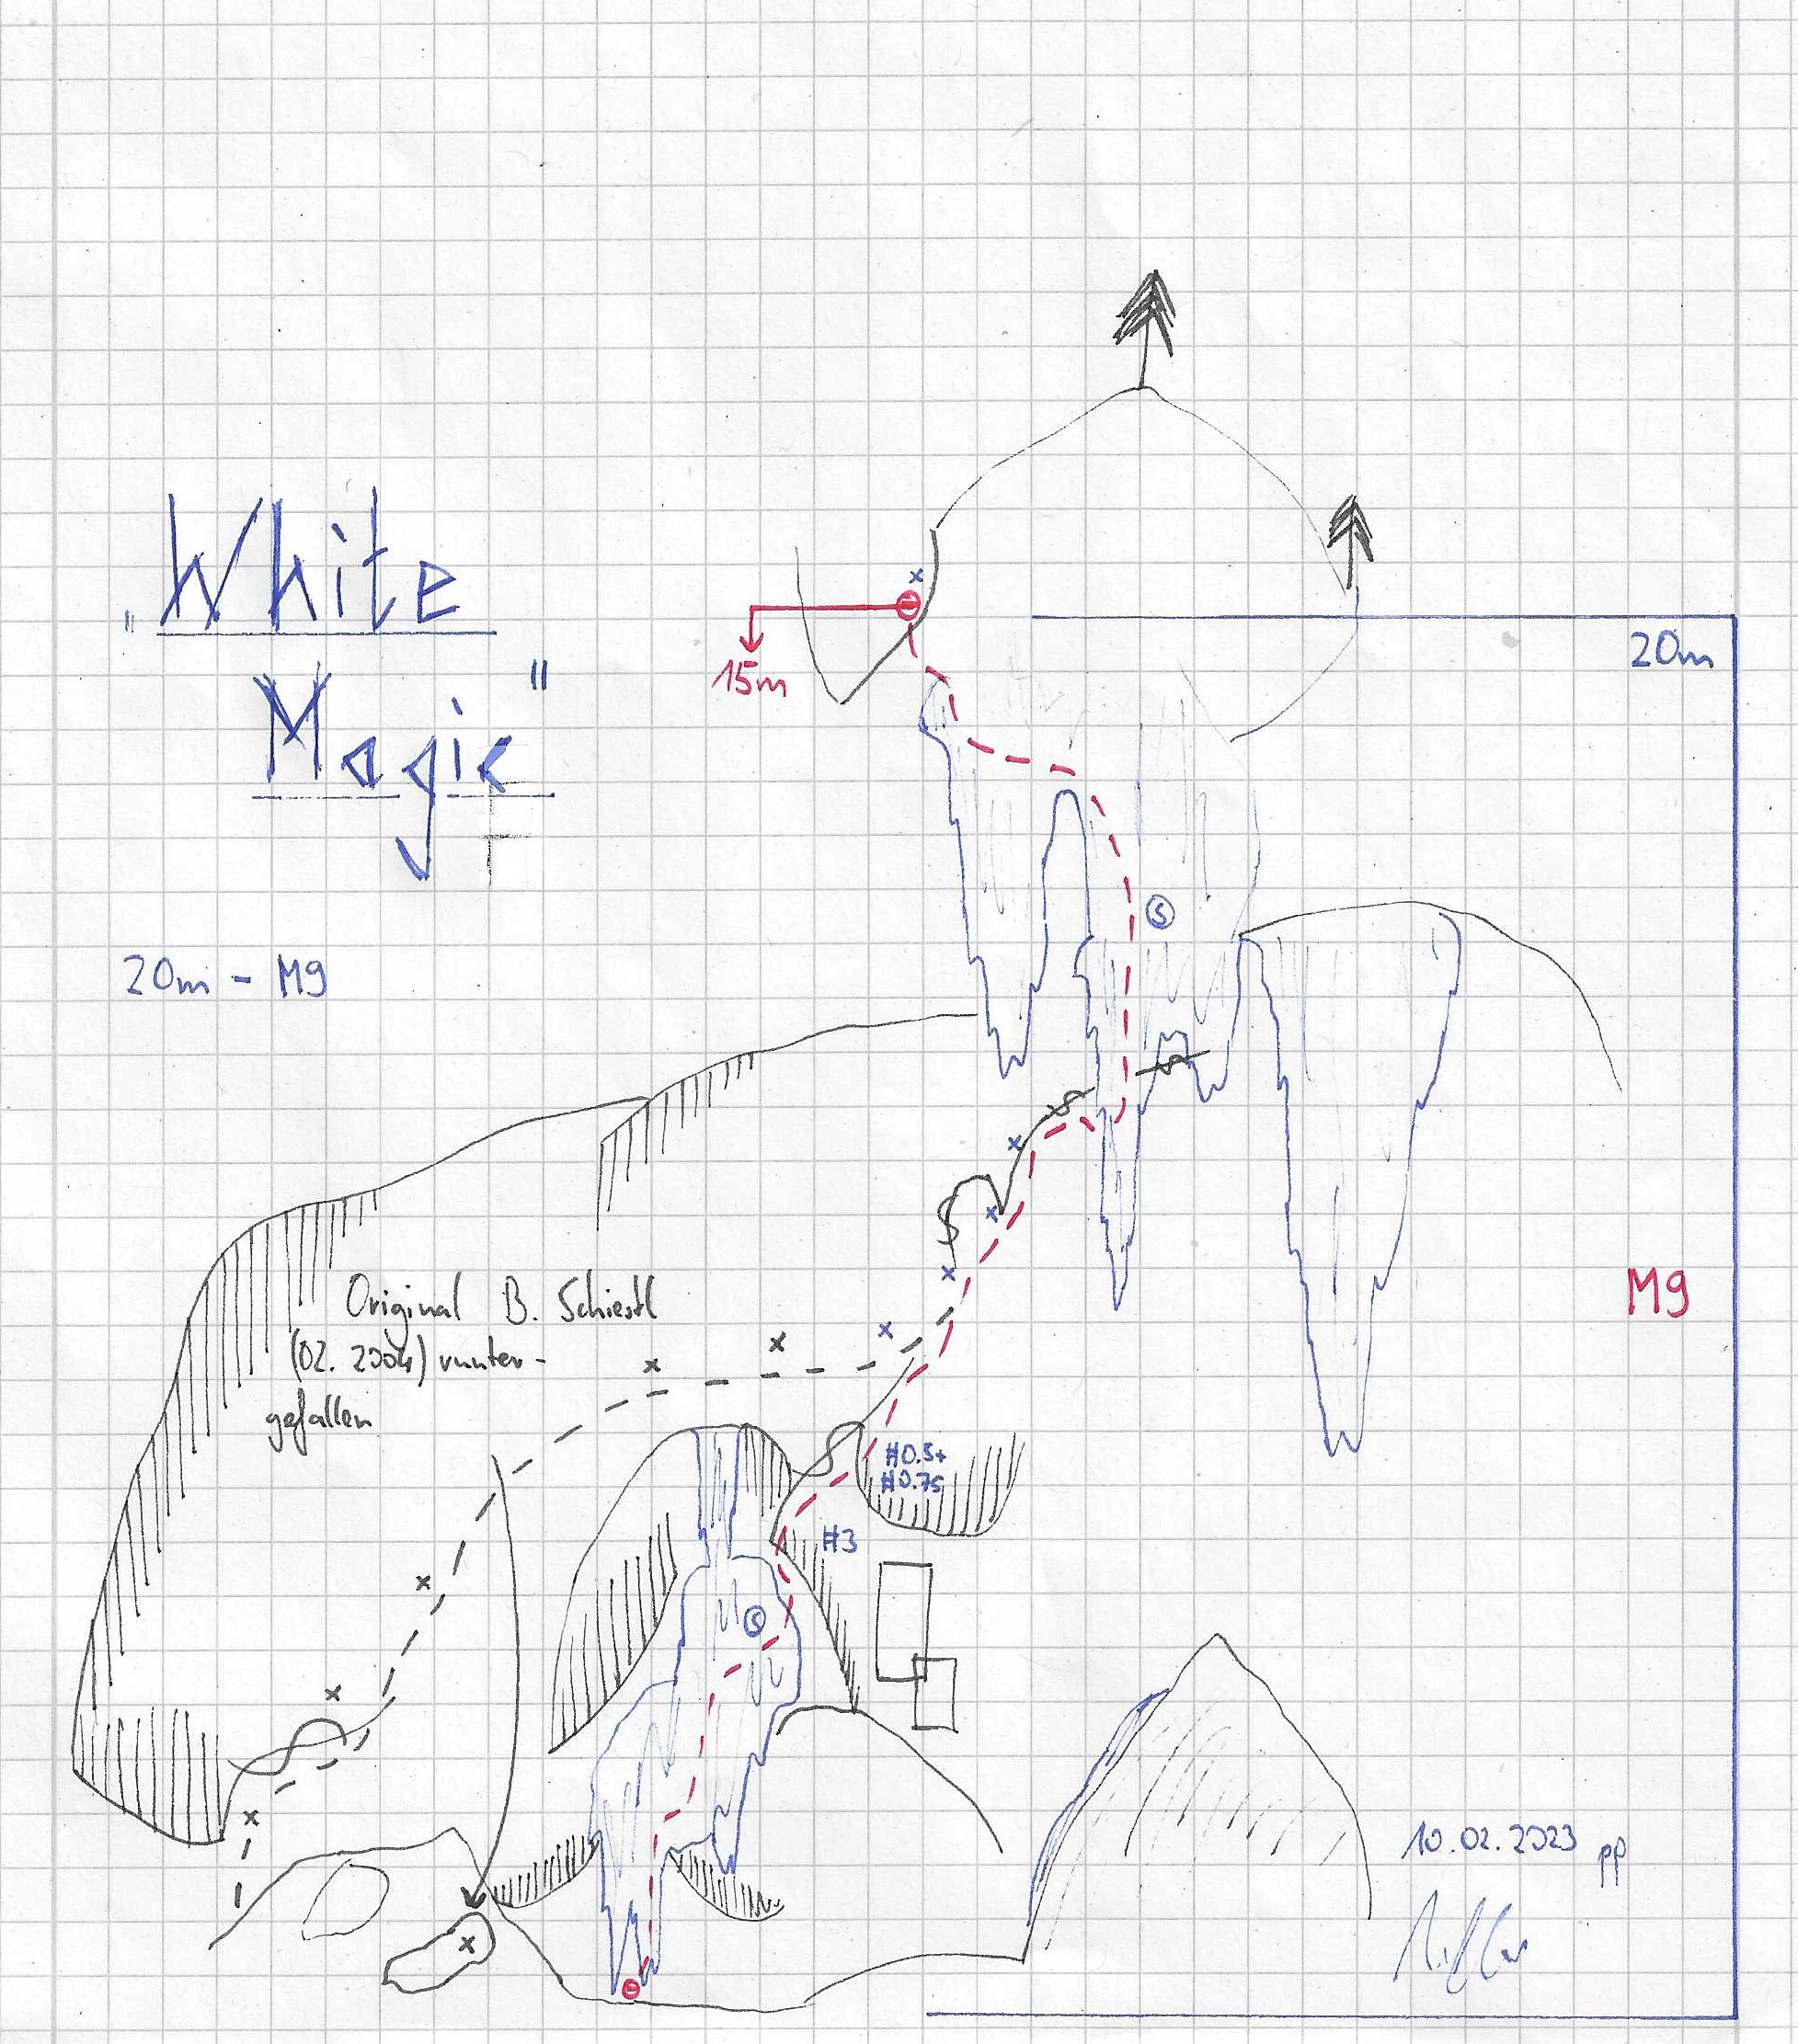 "White
Magic"
20m
15m
20m - M9
M9
Original B. Schiestl
(02. 2004) runter-
gefallen
#0.5+
#0.75
#3
10.02.2023 pp